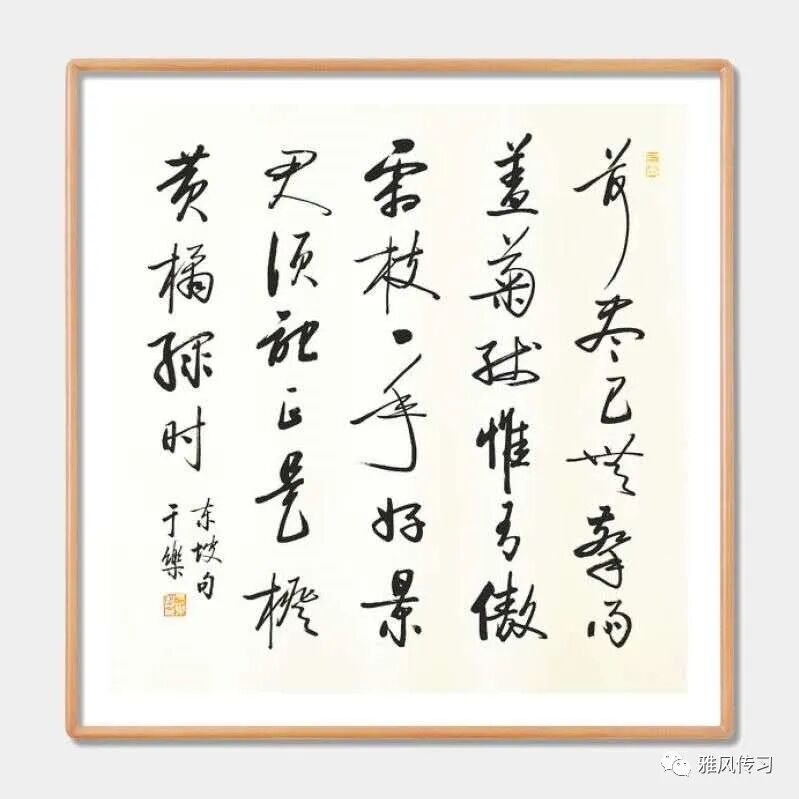 荷尽已無擎雨
盖菊残惟有傲
霜枝一年好景
君须能正是橙
黄橘绿时
东坡句
于樂
雅风传习